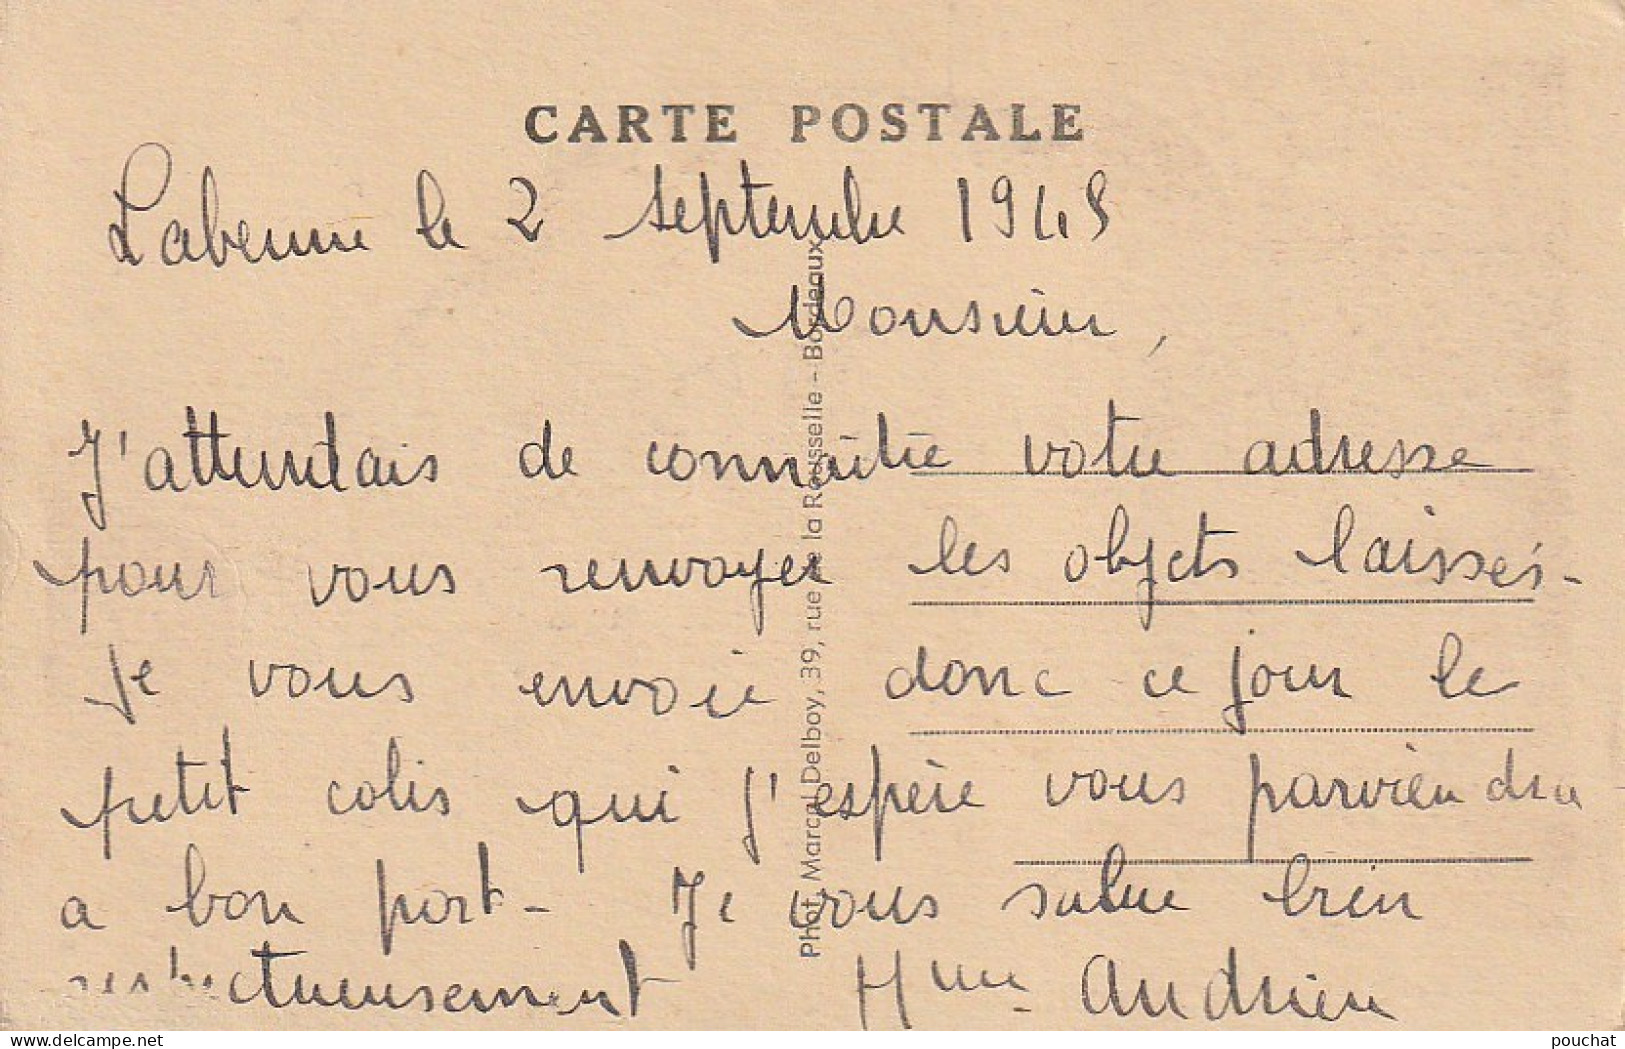 CARTE POSTALE
Labenne le 2 septembre 1948
Monsieur,
J'attendais de connaître votre adresse
pour vous renvoyer les objets laissés -
Je vous envoie donc ce jour le
petit colis qui j'espère vous parviendra
a bon port - Je vous salue bien
respectueusement Mme Andrieu
Phot. Marcel Delboy, 39, rue de la Rousselle - Bordeaux
delcampe.net
pouchat